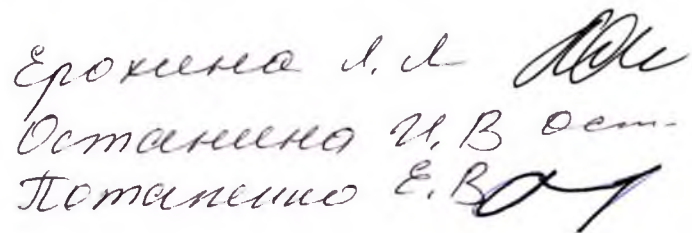 Ерохина Л. Л
Останина И. В Ост-
Потапенко Е. В